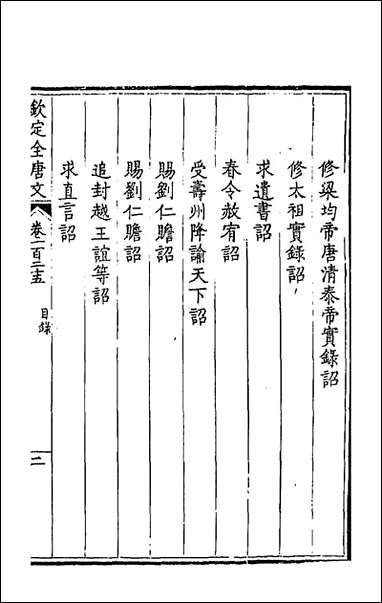 修梁均帝唐清泰帝實録詔
修太祖實録詔
求遺書詔
春令赦宥詔
受壽州降諭天下詔
賜劉仁贍詔
賜劉仁贍詔
追封越王誼等詔
求直言詔
欽定全唐文
卷一百二十五
目録
二